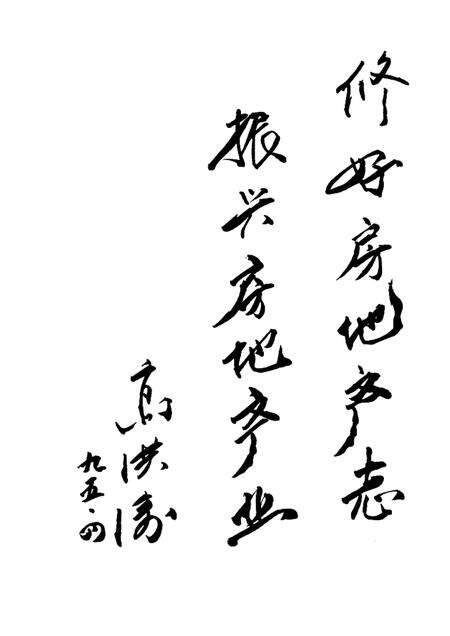 修好房地产志
振兴房地产业
高洪涛
九五.四